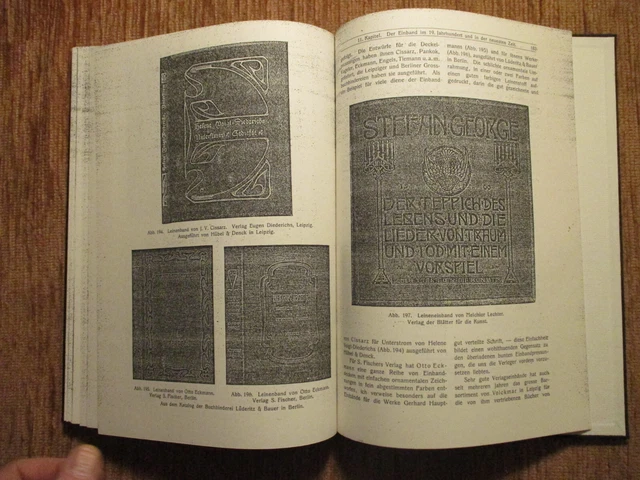 Helene Voigt-Diederichs
Unterstrom Gedichte
Abb. 194. Leinenband von J. V. Cissarz. Verlag Eugen Diederichs, Leipzig.
Ausgeführt von Hübel & Denck in Leipzig.
Abb. 195. Leinenband von Otto Eckmann.
Verlag S. Fischer, Berlin.
Abb. 196. Leinenband von Otto Eckmann.
Verlag S. Fischer, Berlin.
Aus dem Katalog der Buchbinderei Lüderitz & Bauer in Berlin.
Kapitel. Der Einband im 19. Jahrhundert und in der neuesten Zeit.
Die Entwürfe für die Deckel-
haben ihnen Cissarz,
Eckmann, Engels, Tiemann u. a. m.
die Leipziger und Berliner Gross-
haben sie ausgeführt. Als
Beispiel für viele diene der Einband
mann (Abb. 195) und für dessen Werke
(Abb. 196), ausgeführt von Lüderitz & Bauer
in Berlin. Die schlichte ornamentale Um-
rahmung, in einer oder zwei Farben auf
einen guten farbigen Leinenstoff auf-
gedruckt, darin die gut geordnete und
STEFAN GEORGE
DER TEPPICH DES
LEBENS UND DIE
LIEDER VON TRAUM
UND TOD MIT EINEM
VORSPIEL
Abb. 197. Leineneinband von Melchior Lechter.
Verlag der Blätter für die Kunst.
von Cissarz für Unterstrom von Helene
Voigt-Diederichs (Abb. 194) ausgeführt von
Hübel & Denck.
Für S. Fischers Verlag hat Otto Eck-
mann eine ganze Reihe von Einband-
decken mit einfachen ornamentalen Zeich-
nungen in fein abgestimmten Farben ent-
worfen, ich verweise besonders auf die
Einbände für die Werke Gerhard Haupt-
gut verteilte Schrift, — diese Einbände
bilden einen wohltuenden Gegensatz zu
den überladenen bunten Einbandpressun-
gen, die uns die Verleger vordem vorzu-
setzen liebten.
Sehr gute Verlagseinbände hat auch
seit mehreren Jahren das grosse Bar-
sortiment von Volckmar in Leipzig für
die von ihm vertriebenen Bücher von